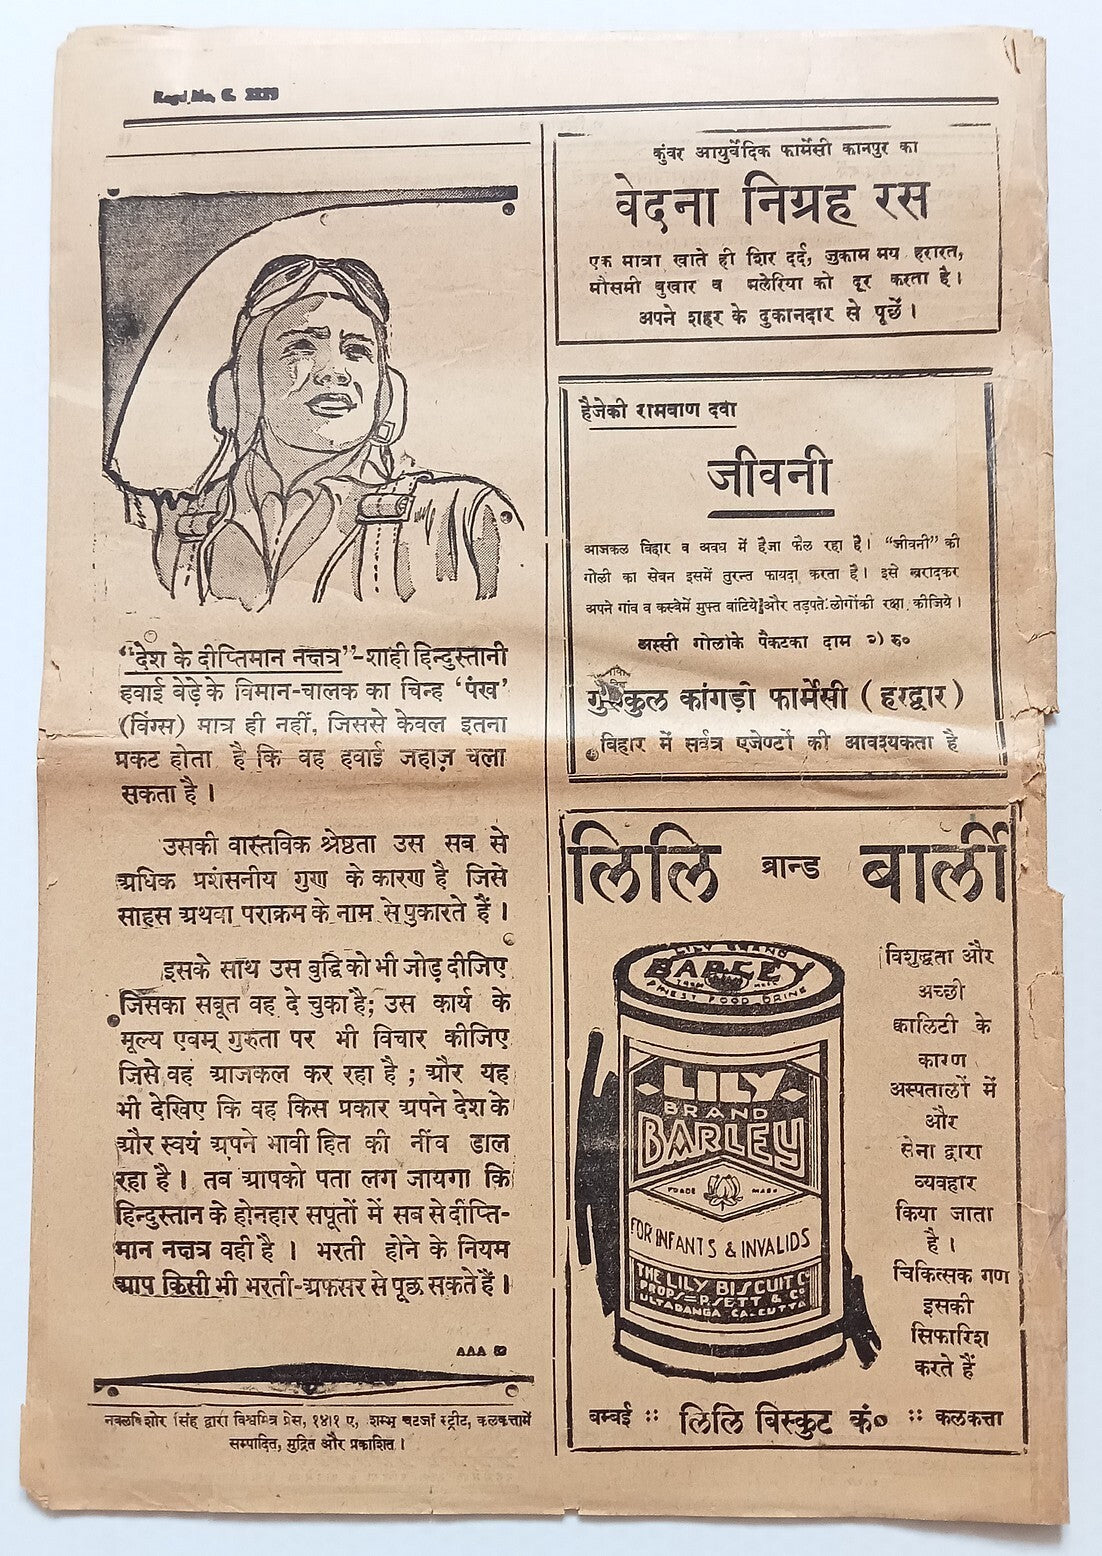 Regd No, C. 2229
“देश के दीप्तिमान नक्षत्र”-शाही हिन्दुस्तानी
हवाई बेड़े के विमान-चालक का चिन्ह ‘पंख’
(विंग्स) मात्र ही नहीं, जिससे केवल इतना
प्रकट होता है कि वह हवाई जहाज़ चला
सकता है ।
उसकी वास्तविक श्रेष्ठता उस सब से
अधिक प्रशंसनीय गुण के कारण है जिसे
साहस अथवा पराक्रम के नाम से पुकारते हैं ।
इसके साथ उस बुद्धि को भी जोड़ दीजिए
जिसका सबूत वह दे चुका है; उस कार्य के
मूल्य एवम् गुरुता पर भी विचार कीजिए
जिसे वह आजकल कर रहा है ; और यह
भी देखिए कि वह किस प्रकार अपने देश के
और स्वयं अपने भावी हित की नींव डाल
रहा है । तब आपको पता लग जायगा कि
हिन्दुस्तान के होनहार सपूतों में सब से दीप्ति-
मान नक्षत्र वही है । भरती होने के नियम
आप किसी भी भरती-अफसर से पूछ सकते हैं ।
AAA
नवलकिशोर सिंह द्वारा विश्वमित्र प्रेस, १४।१ ए, शम्भु चटर्जी स्ट्रीट, कलकत्तामें
सम्पादित, मुद्रित और प्रकाशित ।
कुंवर आयुर्वेदिक फार्मेसी कानपुर का
वेदना निग्रह रस
एक मात्रा खाते ही शिर दर्द, जुकाम मय हरारत,
मौसमी बुखार व मलेरिया को दूर करता है ।
अपने शहर के दुकानदार से पूछें ।
हैजेकी रामबाण दवा
जीवनी
आजकल बिहार व अवध में हैजा फैल रहा है । “जीवनी” की
गोली का सेवन इसमें तुरन्त फायदा करता है । इसे खरीदकर
अपने गांव व कस्बेमें मुफ्त बांटिये और तड़पते लोगोंकी रक्षा कीजिये ।
अस्सी गोलीके पैकटका दाम २) रु०
गुरुकुल कांगड़ी फार्मेसी ( हरद्वार )
बिहार में सर्वत्र एजेण्टों की आवश्यकता है
लिलि ब्रान्ड बार्ली
LILY BRAND
BARLEY
FINEST FOOD DRINK
LILY
BRAND
BARLEY
TRADE MARK
FOR INFANTS & INVALIDS
THE LILY BISCUIT Co
PROPS=R.SETT & Co
ULTADANGA-CALCUTTA
विशुद्धता और
अच्छी
क्वालिटी के
कारण
अस्पतालों में
और
सेना द्वारा
व्यवहार
किया जाता
है ।
चिकित्सक गण
इसकी
सिफारिश
करते हैं
बम्बई :: लिलि बिस्कुट कं० :: कलकत्ता